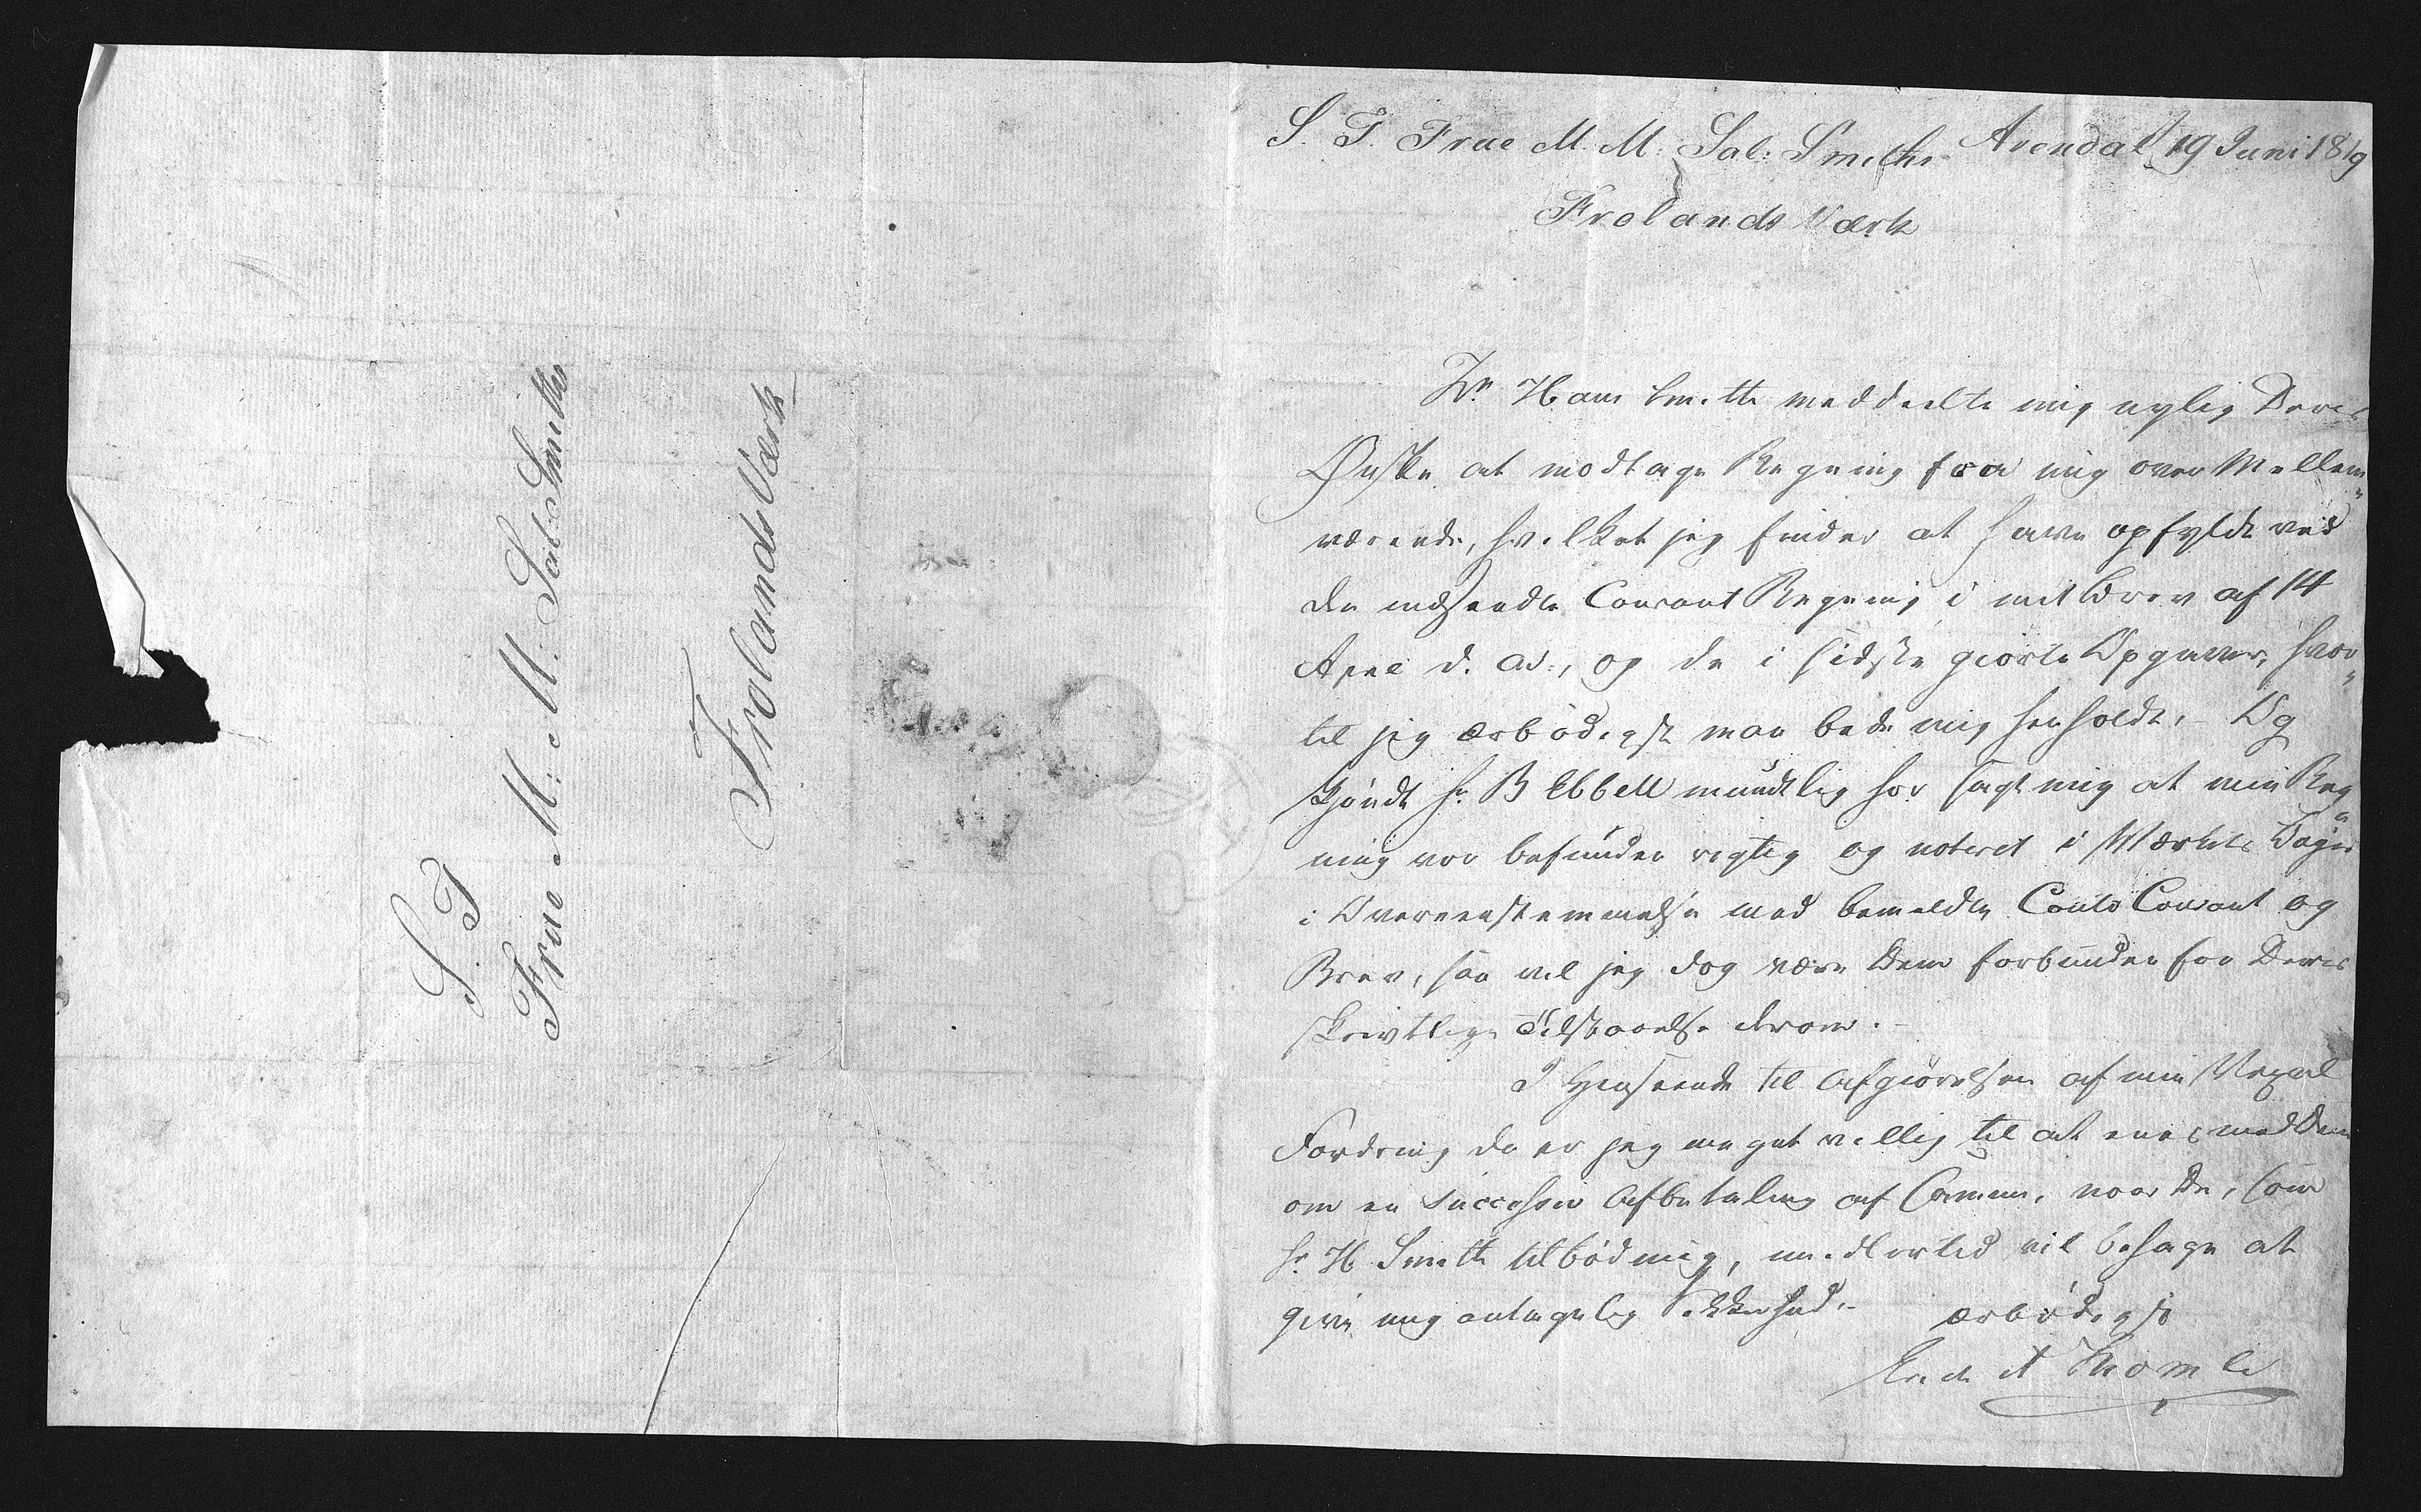 S. T.
Frue M: M: Sal: Smiths
Frolands Værk
S. T. Frue M. M. Sal: Smiths Arendal 19 Juni 1819
Frolands Værk
Hr. Hans Smith meddeelte mig nylig Deres
Ønske at modtage Regning fra mig over Mellem-
værende, hvilket jeg finder at have opfyldt ved
den indsendte Courant Regning i mit Brev af 14
April d. A., og de i sidste giorte Opgaver, hvor-
til jeg ærbødigst maa bede mig henholdt. - Og
skjøndt Hr. B Ebbell mundtlig har sagt mig at min Reg-
ning var befunden rigtig og noteret i Værkets Bøger
i Overeenstemmelse med bemeldte Conto Courant og
Brev, saa vil jeg dog være Dem forbunden for Deres
skrivtlige Tilstaaelse derom. -
I Henseende til Afgiørelsen af min Vexel
Fordring da er jeg meget villig til at enes med Dem
om en successiv Afbetaling af Samme, naar De, som
Hr. H Smith tilbød mig, imidlertid vil behage at
give mig antagelig Sikkerhed. - ærbødigst
A Thomle